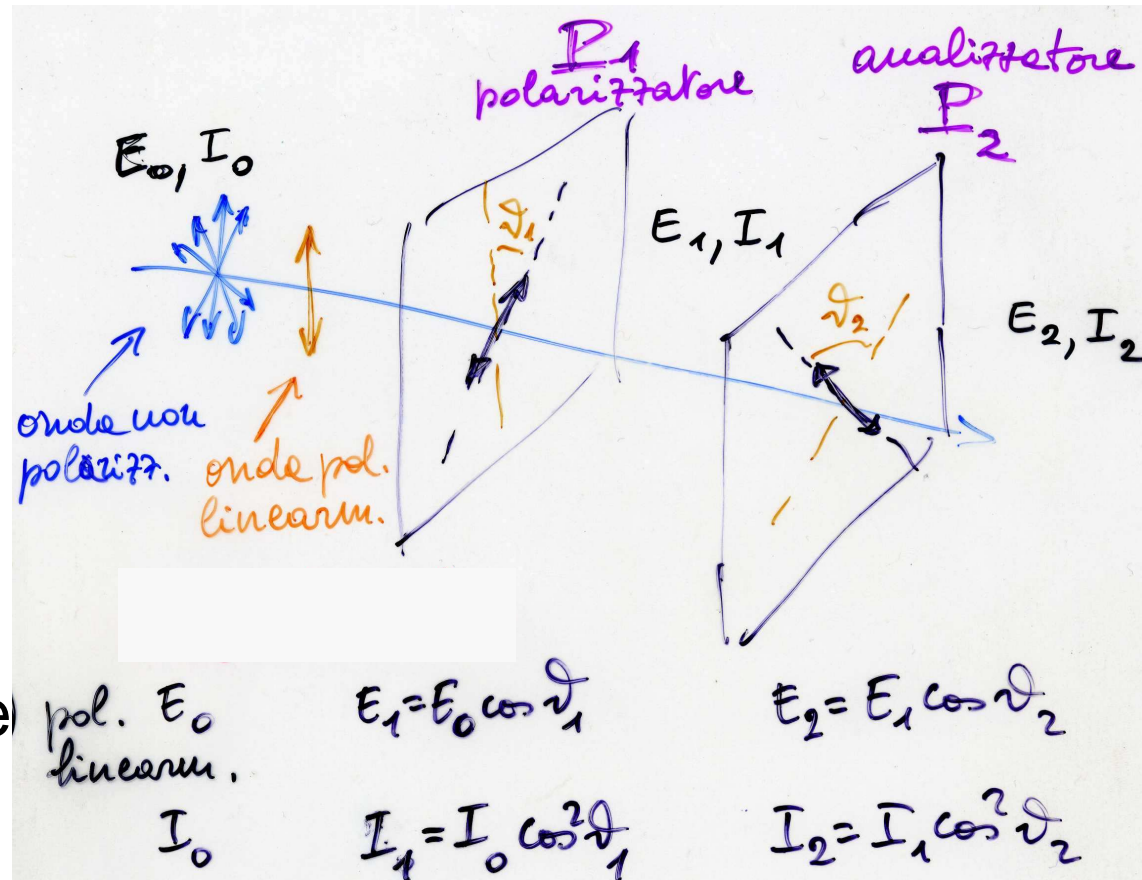 P1
polarizzatore
analizzatore
P2
E0, I0
ϑ1
E1, I1
ϑ2
E2, I2
onda non
polarizz.
onda pol.
linearm.
e)
pol. E0
linearm.
E1=E0 cos ϑ1
E2= E1 cos ϑ2
I0
I1 = I0 cos²ϑ1
I2= I1 cos²ϑ2